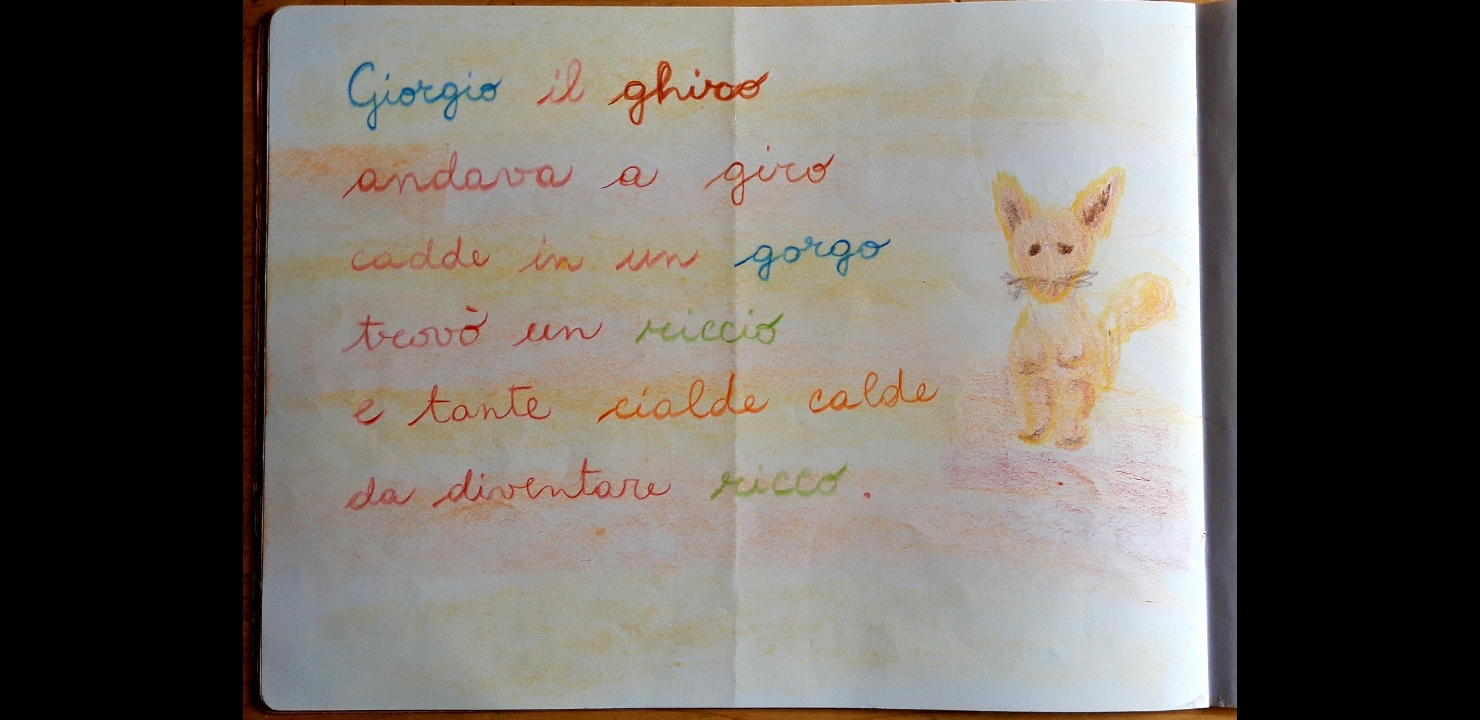 Giorgio il ghiro
andava a giro
cadde in un gorgo
trovò un riccio
e tante cialde calde
da diventare ricco.